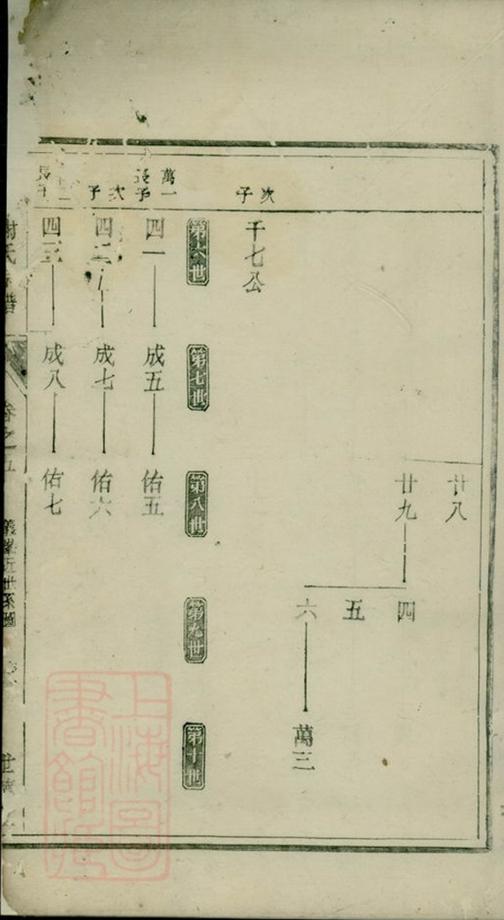 廿八
廿九
四
五
六
萬三
次子
千七公
第六世
第七世
第八世
第九世
第十世
萬一長子
四一
成五
佑五
次子
四二
成七
佑六
長子
四三
成八
佑七
氏
譜
卷之五
世系圖
上海圖書館藏